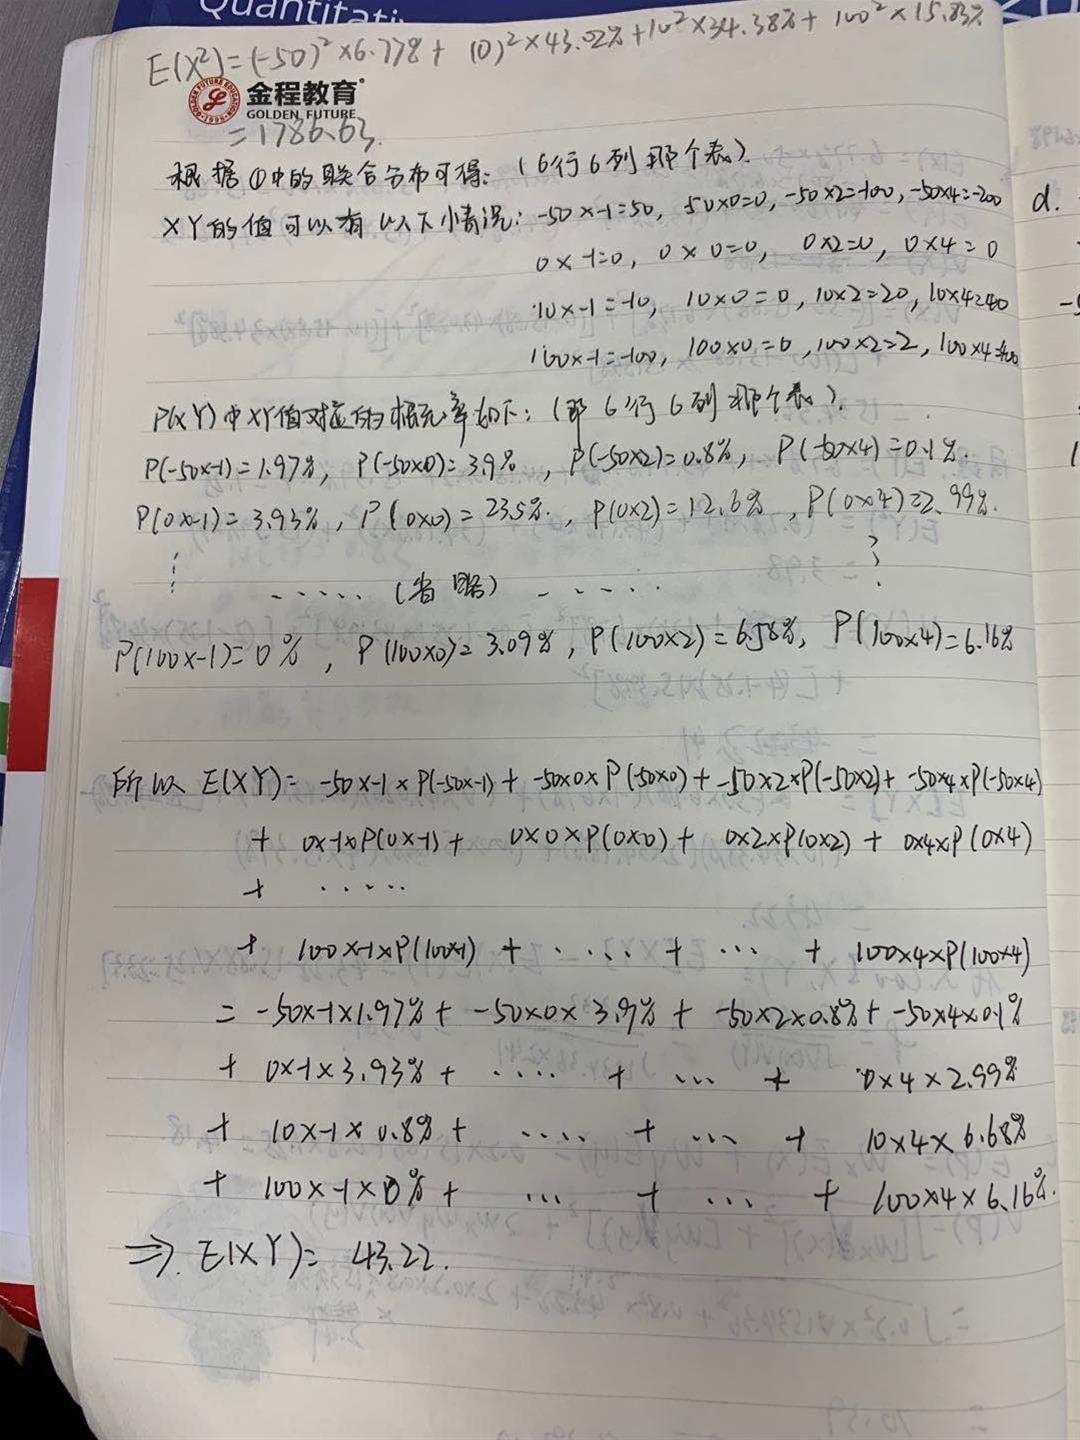 Quantitati
E(X²)=(-50)²×6.77%+(0)²×43.02%+10²×34.38%+100²×15.83%
金程教育
GOLDEN FUTURE
=1786.63.
根据①中的联合分布可得:(6行6列那个表).
XY的值可以有以下情况: -50×-1=50, 50×0=0, -50×2=-100, -50×4=-200
d.
0×-1=0, 0×0=0, 0×2=0, 0×4=0
10×-1=-10, 10×0=0, 10×2=20, 10×4=40
100×-1=-100, 100×0=0, 100×2=2, 100×4=400
P(XY)中XY值对应的概率如下:(那6行6列那个表).
P(-50×-1)=1.97%, P(-50×0)=3.9%, P(-50×2)=0.8%, P(-50×4)=0.1%.
P(0×-1)=3.93%, P(0×0)=23.5%., P(0×2)=12.6%, P(0×4)=2.99%.
.....(省略) .....
P(100×-1)=0%, P(100×0)=3.09%, P(100×2)=6.58%, P(100×4)=6.16%
所以 E(XY)= -50×-1×P(-50×-1)+ -50×0×P(-50×0)+ -50×2×P(-50×2)+ -50×4×P(-50×4)
+ 0×-1×P(0×-1)+ 0×0×P(0×0)+ 0×2×P(0×2)+ 0×4×P(0×4)
+ .....
+ 100×-1×P(100×1) + ..... + ... + 100×4×P(100×4)
= -50×-1×1.97%+ -50×0×3.9%+ -50×2×0.8%+ -50×4×0.1%
+ 0×-1×3.93%+ .... + ... + 0×4×2.99%
+ 10×-1×0.8%+ .... + ... + 10×4×6.68%
+ 100×-1×0%+ ... + ... + 100×4×6.16%.
⇒. E(XY)= 43.22.